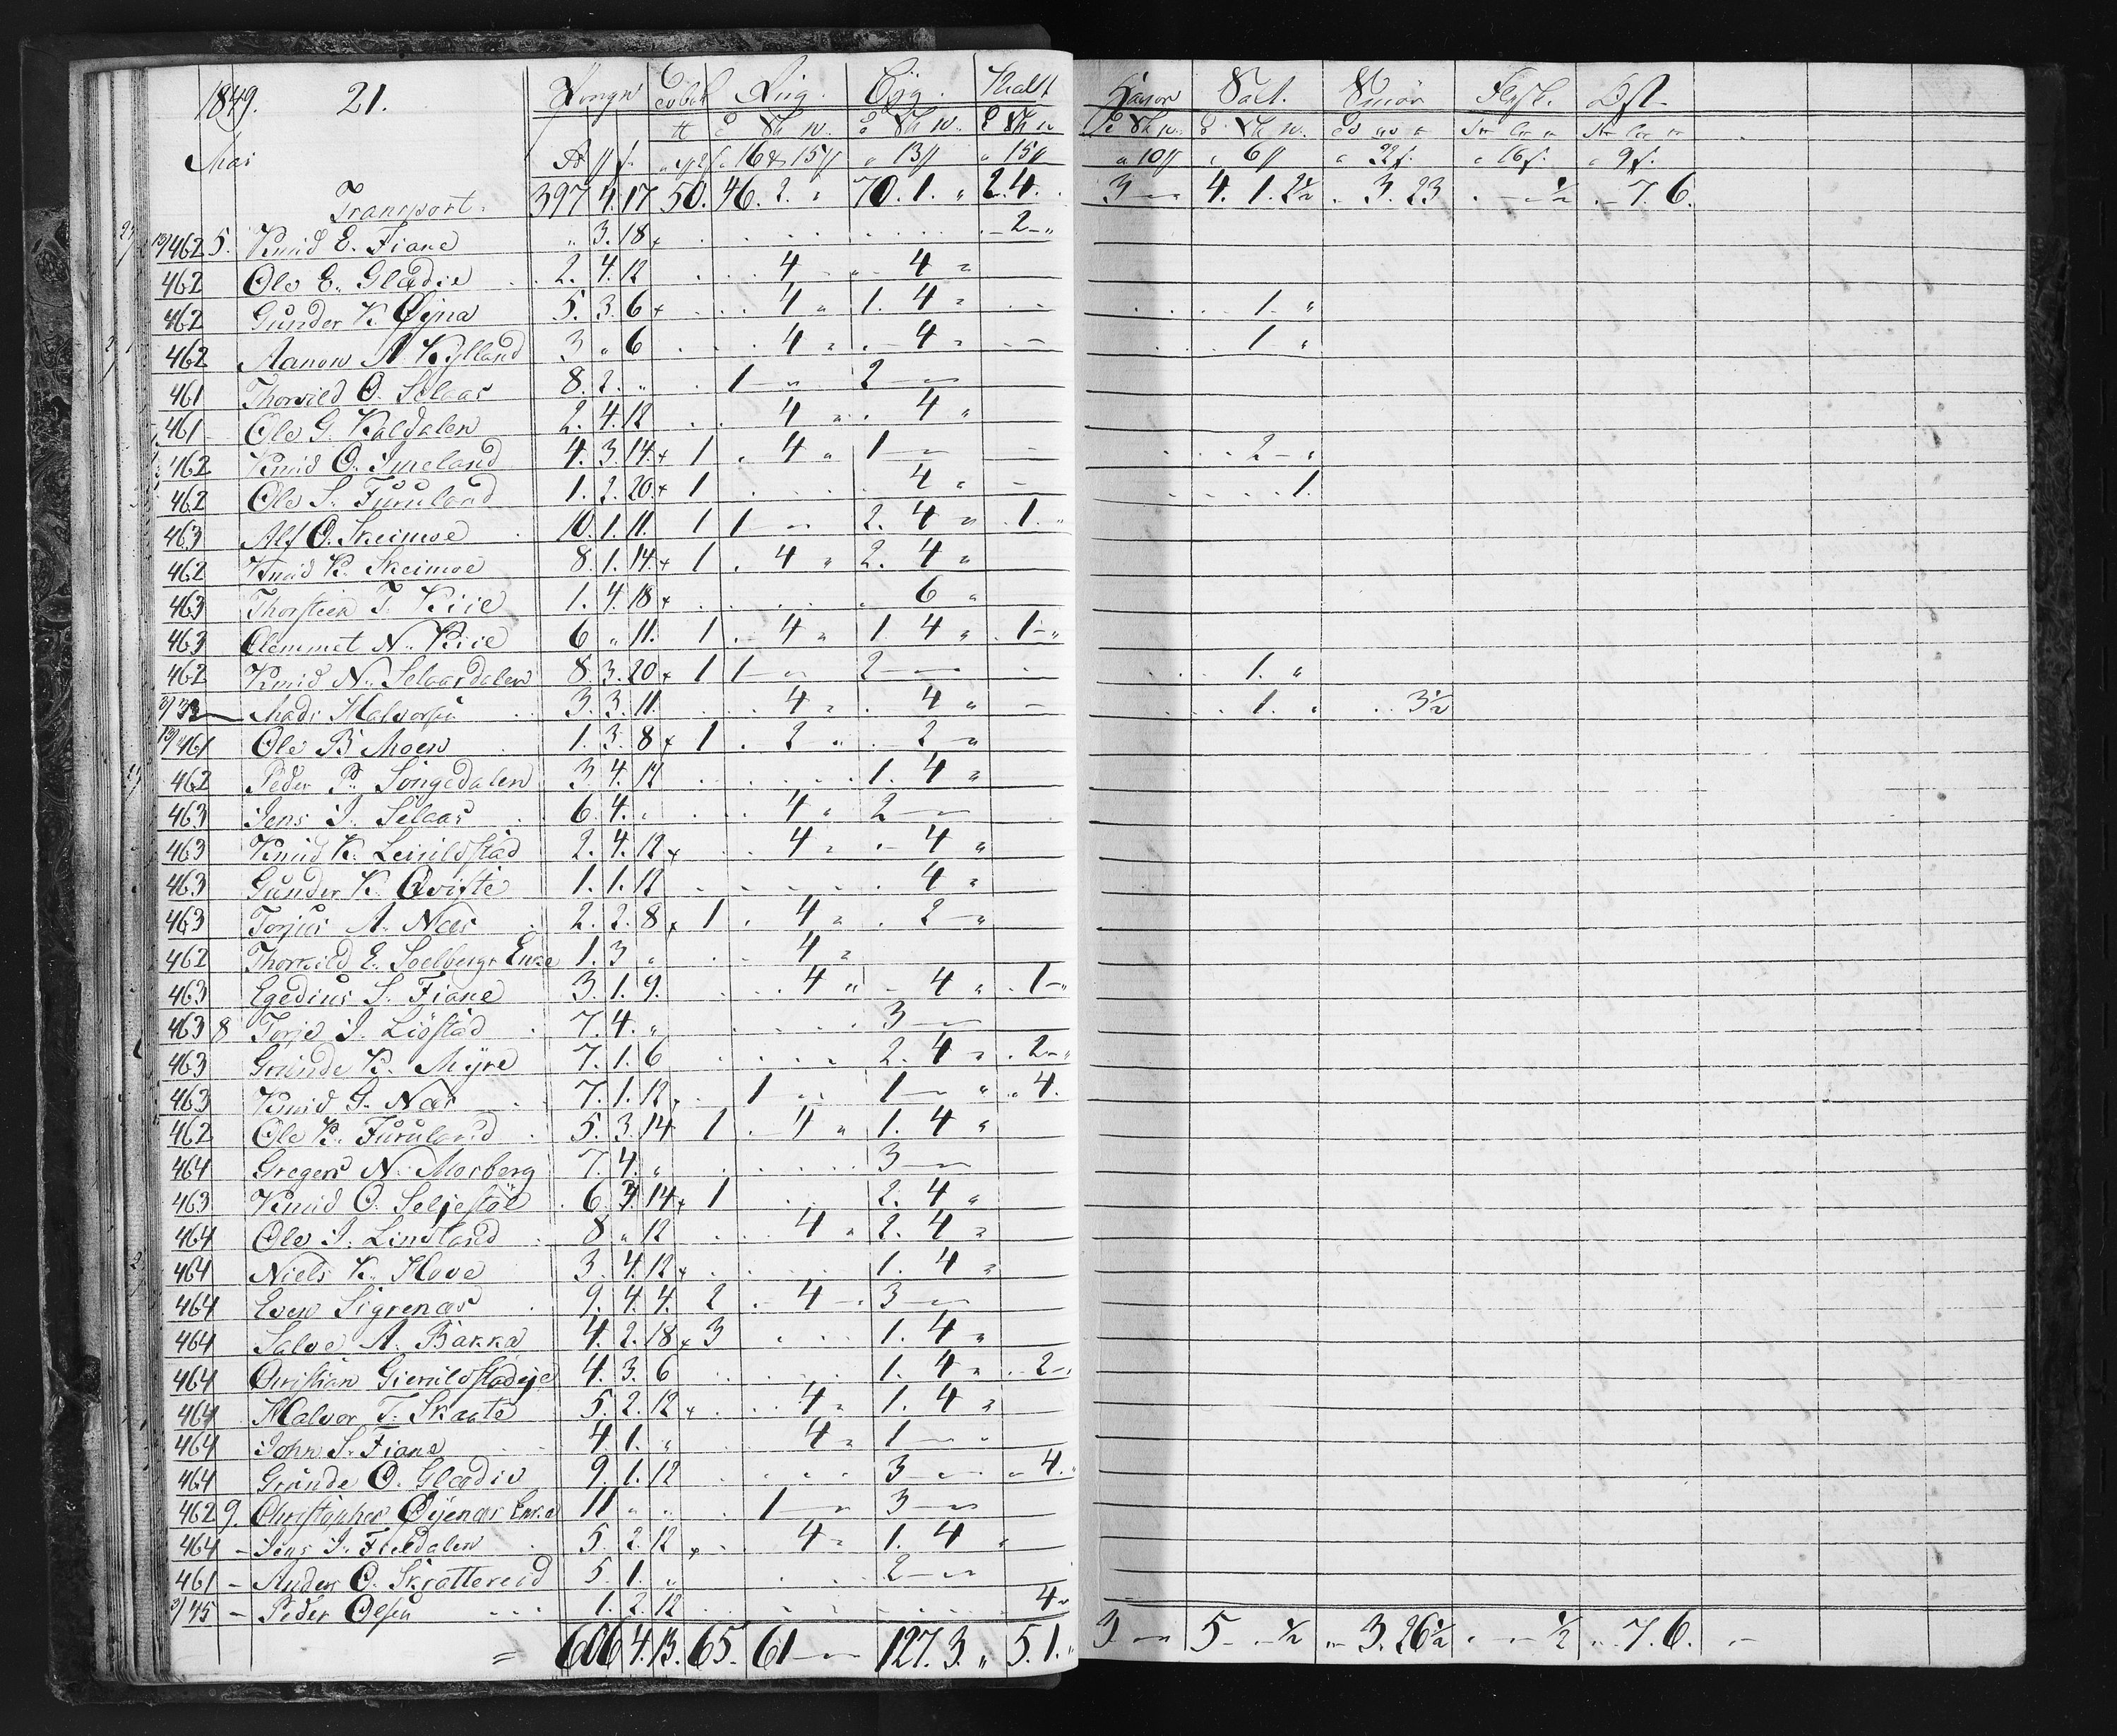 1849. 21. Penge Tobak Rug. Byg. Malt Havre Salt. Smör Flesk. Ost.
Mai 16 & 15ß 13ß 15ß 10ß 6ß 22ß. 16ß. 9ß.
Transport. 397 4. 17 50. 46. 2. „ 70. 1. „ 2. 4. 3 — 4. 1. 2½ . 3. 23 . - ½ . - 7. 6.
13/462 5. Knud E. Fiane „ 3. 18 - 2 - „
462 Ole E. Gladie 2. 4. 12 4 4 „
462 Gunder K. Øyna 5. 3. 6 4 „ 1. 4 „ 1. „
462 Aanon A Kylland 3 „ 6 4 „ 4 „ 1 „
461 Thorvild O. Selaas 8. 2. „ 1 — 2 —
461 Ole G. Kaldalen 2. 4. 12 4 „ 4 „
462 Knud O. Imeland 4. 3. 14 1 4 „ 1 — 2 - „
462 Ole S. Furuland 1. 2. 20 1 4 „ 1.
463 Alf O. Skeimoe 10. 1. 11. 1 1 — 2. 4 „ 1. „
462 Knud K. Skeimoe 8. 1. 14 1 4 „ 2. 4 „
463 Thorsteen T. Kiie 1. 4. 18 6 „
463 Clemmet N. Kiie 6 „ 11. 1 4 „ 1. 4 „ 1 - „
462 Knud N. Selaasdalen 8. 3. 20 1 1 — 2 — 1. „
Mads Halvorsen 3. 3. 11. 4 „ 4 „ 1. „ 3½
13/461 Ole B Moen 1. 3. 8 1 2 „ 2 „
462 Peder P. Songedalen 3 4. 12 1. 4 „
463 Jens J. Selaas 6. 4. „ 4 „ 2 —
463 Knud K. Leiulfstad 2. 4. 12 4 „ 4 „
463 Gunder K. Qviste 1. 1. 12 4 „
463 Torjus A. Næs 2. 2. 8 1 4 „ 2 „
462 Thorkild E. Solberg Enke 1. 3 „ 4 „
463 Egedius S. Fiane 3. 1. 9. 4 „ 4 „ 1 - „
463 8 Torje J. Lidstad 7. 4. „ 3 —
463 Grunde K. Myre 7. 1. 6 2. 4 „ 2 - „
463 Knud G. Næs 7. 1. 12 1 „ 1 — „ 4.
462 Ole K. Furuland 5. 3. 14 1 4 „ 1. 4 „
464 Gregers N. Mosberg 7. 4. „ 3 —
463 Knud O. Seljestöl 6. 3. 14 1 2. 4 „
464 Ole J. Lindland 8 „ 12 4 „ 2. 4 „
464 Niels K. Hove 3. 4. 12 1. 4 „
464 Even Sigrenæs 9. 4. 4. 2 4 3 —
464 Salve A. Bakka 4. 2. 18 3 1. 4 „
464 Christian 4. 3. 6 1. 4 „ 2 - „
464 Halvor T. Skaate 5. 2. 12 4 „ 1. 4 „
464 John S. Fiane 4 1. „ 4 „ 1 —
464 Grunde O. Gladie 9. 1. 12 3 — 4.
462 9. Christopher Øyenæs Enke 11 „ „ 1 — 3 —
464 - Jens J. 5. 2. 12 4 „ 1. 4 „
461 - Anders O. Skrattereid 5. 1. „ 2 —
3/45 - Peder Olsen 1. 2. 12 4 „
= 606 4. 13. 65. 61 — 127. 3. „ 5. 1. „ 3 — 5 - - ½ „ 3. 26½ - ½ „ 7. 6. -